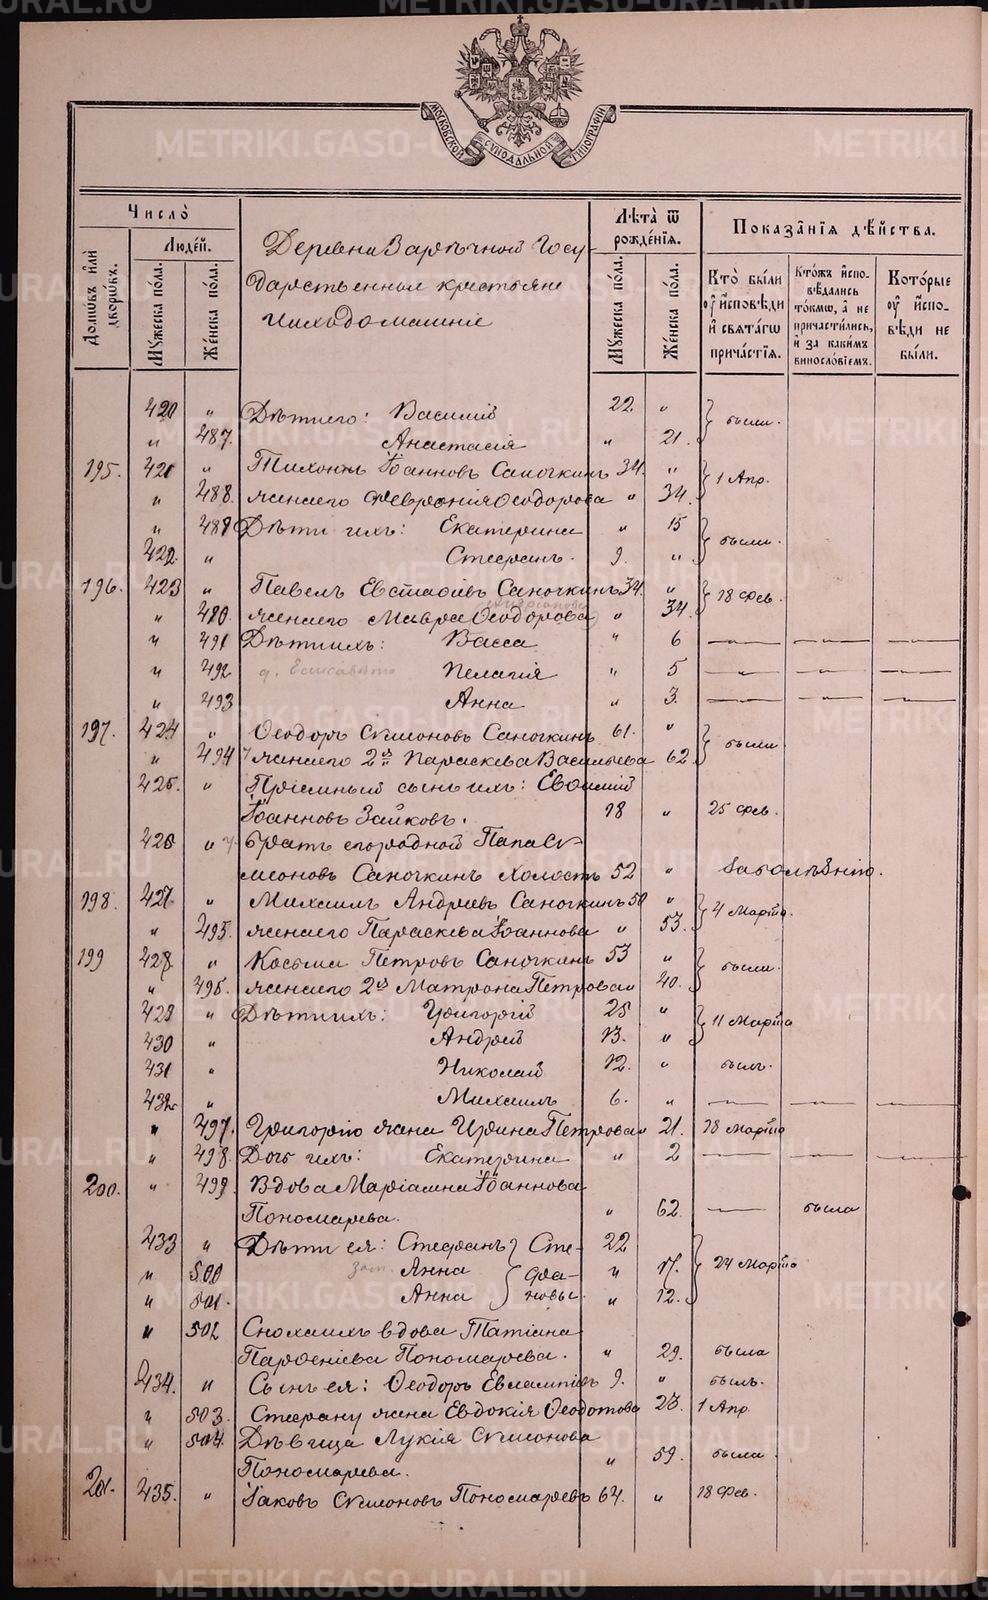 METRIKI.GASO-URAL.RU
МОСКОВСКОЙ СѴНОДАЛЬНОЙ ТИПОГРАФІИ
Число̀
Людéй.
Домѡвъ и҆лѝ дворѡ́къ.
Мꙋ́жеска по́ла.
Же́нска по́ла.
Деревни Зарѣчной Госу-
дарственные крестьяне
и ихъ домашніе
Лѣ́та ѿ рожде́нїѧ.
Мꙋ́жеска по́ла.
Же́нска по́ла.
Показа̑нїѧ дѣ́йства.
Кто̀ бы́ли ᲂу҆ и҆́сповѣди и҆ свѧта́гѡ прича́стїѧ.
Кто́жъ и҆спо-вѣ́дались то́кмѡ, а҆ не причасти́лись, и҆ за каки́мъ винословїемъ.
Кото́рые ᲂу҆ и҆́спо-вѣди не бы́ли.
420 " Дѣти его: Василій 22 " были.
" 487. Анастасія " 21
195. 421 " Тихонъ Іоанновъ Саночкинъ 34 " 1 Апр.
" 488. жена его Феврония Ѳеодорова " 34
" 489 Дѣти ихъ: Екатерина " 15 были.
422. " Стефанъ. 9. "
196. 423 " Павелъ Евстаѳіевъ Саночкинъ 34. " 18 Фев.
" 490. жена его Мавра Ѳеодорова " 34.
" 491 Дѣти ихъ: Васса " 6 — — —
" 492 д. Елисавета Пелагія " 5 — — —
" 493 Анна " 3. — — —
197. 424 " Ѳеодоръ Симоновъ Саночкинъ 61. " были
" 494 жена его 2я Параскева Васильева 62
425. " Пріемный сынъ ихъ: Евѳимій
Іоанновъ Зайковъ. 18 " 25 Фев.
426 " братъ егородной Папа Си-
моновъ Саночкинъ холостъ 52 " Заболѣнію.
198. 427 " Михаилъ Андреевъ Саночкинъ 50 " 4 Марта.
" 495. жена его Параскева Іоаннова " 53.
199 428 " Косьма Петровъ Саночкинъ 53 " были.
" 496. жена его 2я Матрона Петрова " 40.
429 " Дѣти ихъ: Григорій 25 " 11 Марта
430 " Андрей 13. "
431 " Николай 12. " былъ.
432 " Михаилъ 6. " — — —
" 497. Григорію жена Ирина Петрова " 21. 18 Марта
" 498. Дочь ихъ: Екатерина " 2 — — —
200. " 499. Вдова Маріамна Іоаннова
Пономарева. " 62. — была
433 " Дѣти ея: Стефанъ } Сте- 22 24 Марта
" 500 зам. Анна { фа- " 17.
" 501. Анна } новы. " 12.
" 502 Сноха ихъ вдова Татіана
Парѳеніева Пономарева. " 29. была
434. " Сынъ ея: Ѳеодоръ Евлампіевъ 9. " былъ.
" 503. Стефану жена Евдокія Ѳеодотова 23. 1 Апр.
" 504. Дѣвица Лукія Симонова
Пономарева. " 59. была.
201. 435. " Іаковъ Симоновъ Пономаревъ 64. " 18 Фев.